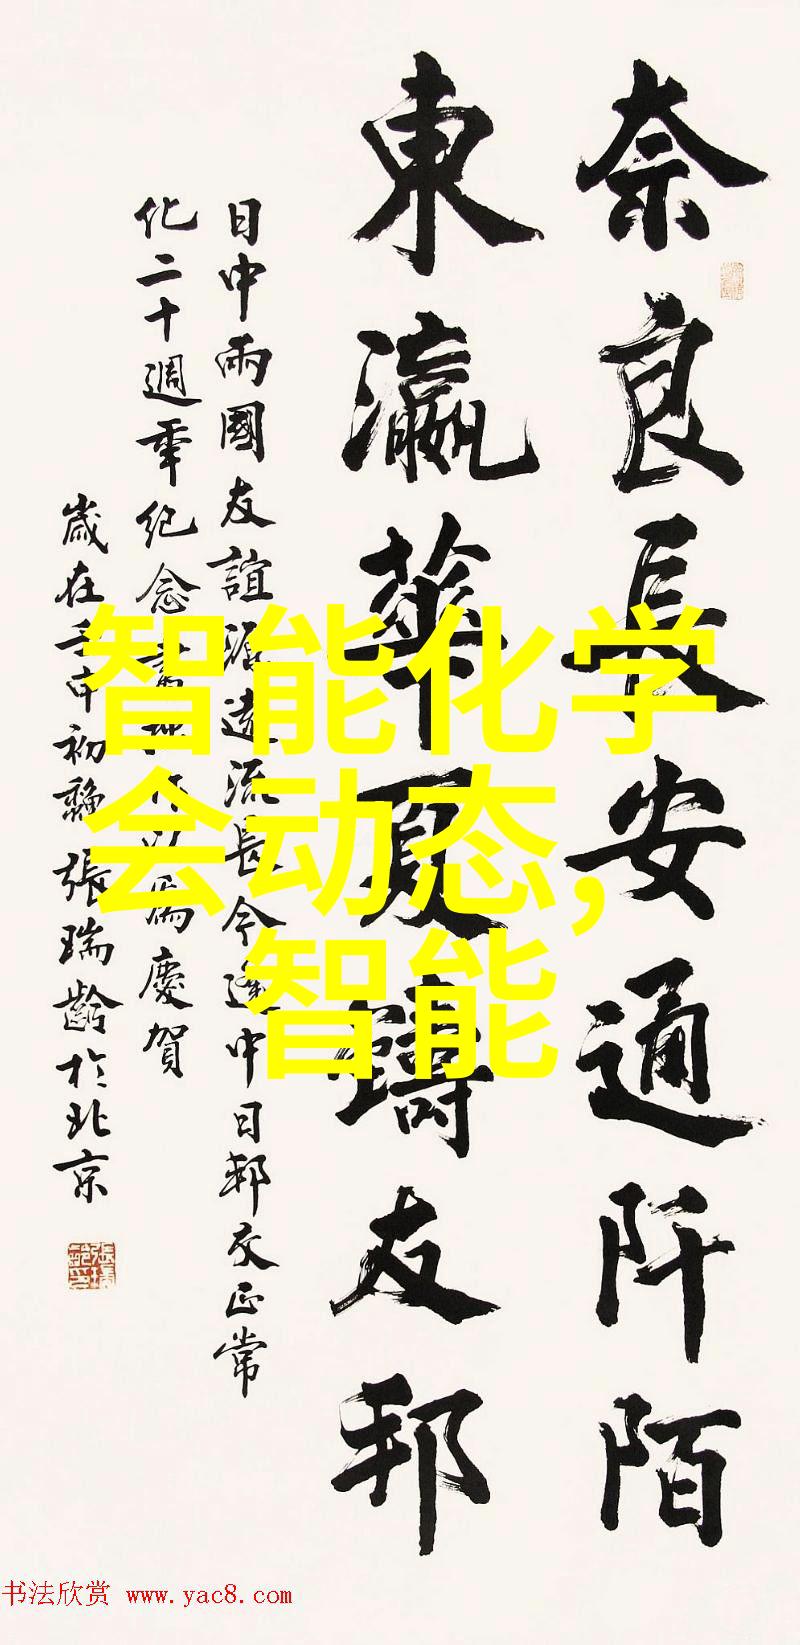 奈良長安通阡陌
東瀛華夏鑄友邦
日中兩國友誼源遠流長今逢中日邦交正常
化二十週年紀念書以爲慶賀
歲在壬申初張瑞齡於北京
智能化学
会动态,
智能
书法欣赏 www.yac8.com